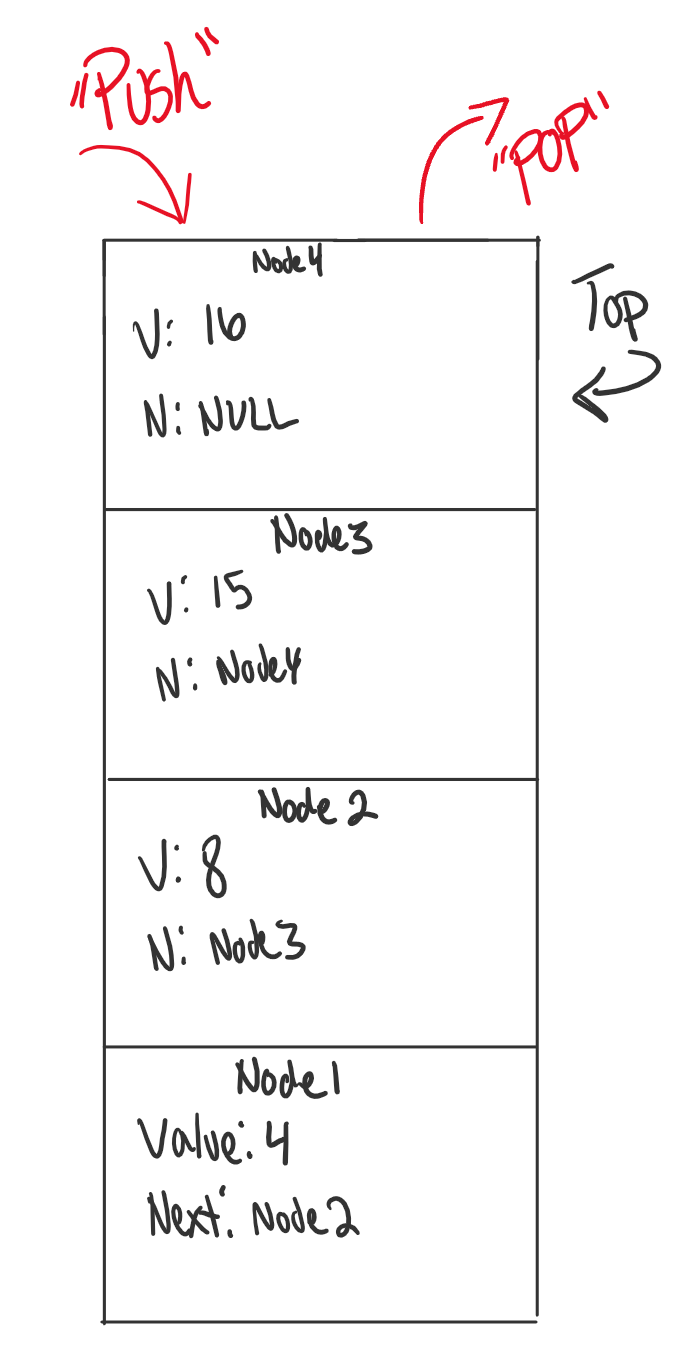 "Push"
"POP"
Node4
V: 16
N: NULL
Top
Node3
V: 15
N: Node4
Node 2
V: 8
N: Node3
Node1
Value: 4
Next: Node2